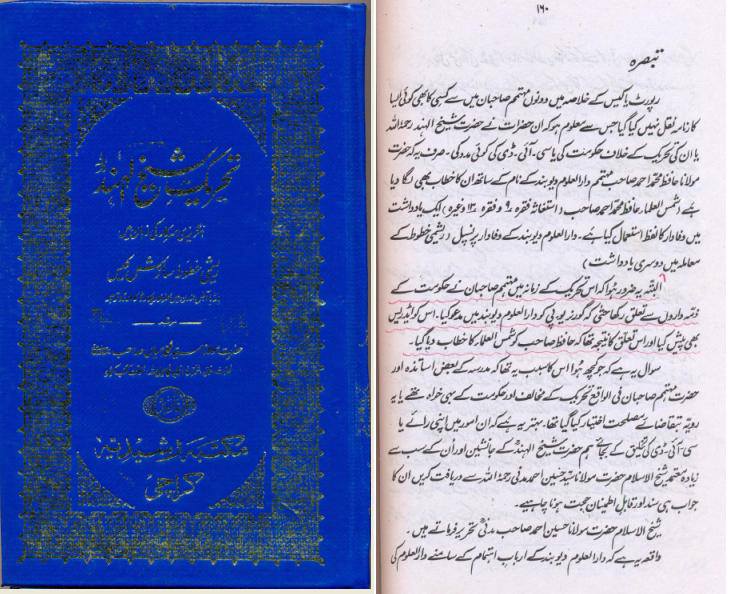 تحریک شیخ الہند
ریشمی خطوط سازش کیس
مکتبہ رشیدیہ
کراچی
۱۶۰
تبصرہ
رپورٹ یا کیس کے خلاصہ میں دونوں مہتمم صاحبان میں سے کسی کا بھی کوئی ایسا
کارنامہ نقل نہیں کیا گیا جس سے معلوم ہو کہ ان حضرات نے حضرت شیخ الہند رحمۃ اللہ
یا ان کی تحریک کے خلاف حکومت کی یا سی۔ آئی۔ ڈی کی کوئی مدد کی۔ صرف یہ کہ حضرت
مولانا حافظ محمد احمد صاحب مہتمم دارالعلوم دیوبند کے نام کے ساتھ ان کا خطاب بھی لگا دیا
ہے (شمس العلماء حافظ محمد احمد صاحب) استغاثہ فقرہ ۹ و فقرہ ۱۳ وغیرہ) ایک یادداشت
میں وفادار کا لفظ استعمال کیا ہے۔ دارالعلوم دیوبند کے وفادار پرنسپل (ریشمی خطوط کے
معاملہ میں دوسری یادداشت)
البتہ یہ ضرور ہوا کہ اس تحریک کے زمانہ میں مہتمم صاحبان نے حکومت کے
ذمہ داروں سے تعلق رکھا حتی کہ گورنر یو۔ پی کو دارالعلوم دیوبند میں مدعو کیا۔ اس کو ایڈریس
بھی پیش کیا اور اس تعلق کا نتیجہ تھا کہ حافظ صاحب کو شمس العلماء کا خطاب دیا گیا۔
سوال یہ ہے کہ جو کچھ ہوا اس کا سبب یہ تھا کہ مدرسہ کے بعض اساتذہ اور
حضرت مہتمم صاحبان فی الواقع تحریک کے مخالف اور حکومت کے بہی خواہ تھے یا یہ
رویہ بتقاضائے مصلحت اختیار کیا گیا تھا۔ بہتر یہ ہے کہ ان امور میں اپنی رائے یا
سی۔ آئی۔ ڈی کی تحقیق کے بجائے ہم حضرت شیخ الہند کے جانشین اور ان کے سب سے
زیادہ معتمد شیخ الاسلام حضرت مولانا سید حسین احمد مدنی رحمۃ اللہ سے دریافت کریں ان کا
جواب ہی سند اور قابل اطمینان حجت ہونا چاہیے۔
شیخ الاسلام حضرت مولانا حسین احمد صاحب مدنی تحریر فرماتے ہیں۔
واقعہ یہ ہے کہ دارالعلوم دیوبند کے ارباب اہتمام کے سامنے دارالعلوم کی